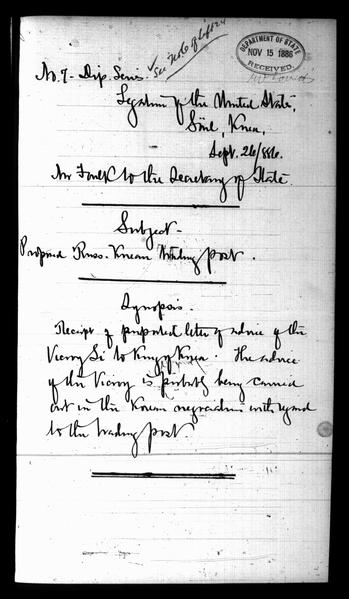 No. 7 - Dip. Series.
DEPARTMENT OF STATE
NOV 15 1886
RECEIVED.
Legation of the United States,
Söul, Korea,
Sept. 26/886.
Mr Foulk to the Secretary of State
Subject -
Proposed Russ. Korean trading post.
Synopsis.
Receipt of purported letter of advice of the
Viceroy Li to King of Korea. The advice
of the Viceroy is probably being carried
out in the Korean negociations with regard
to the trading post